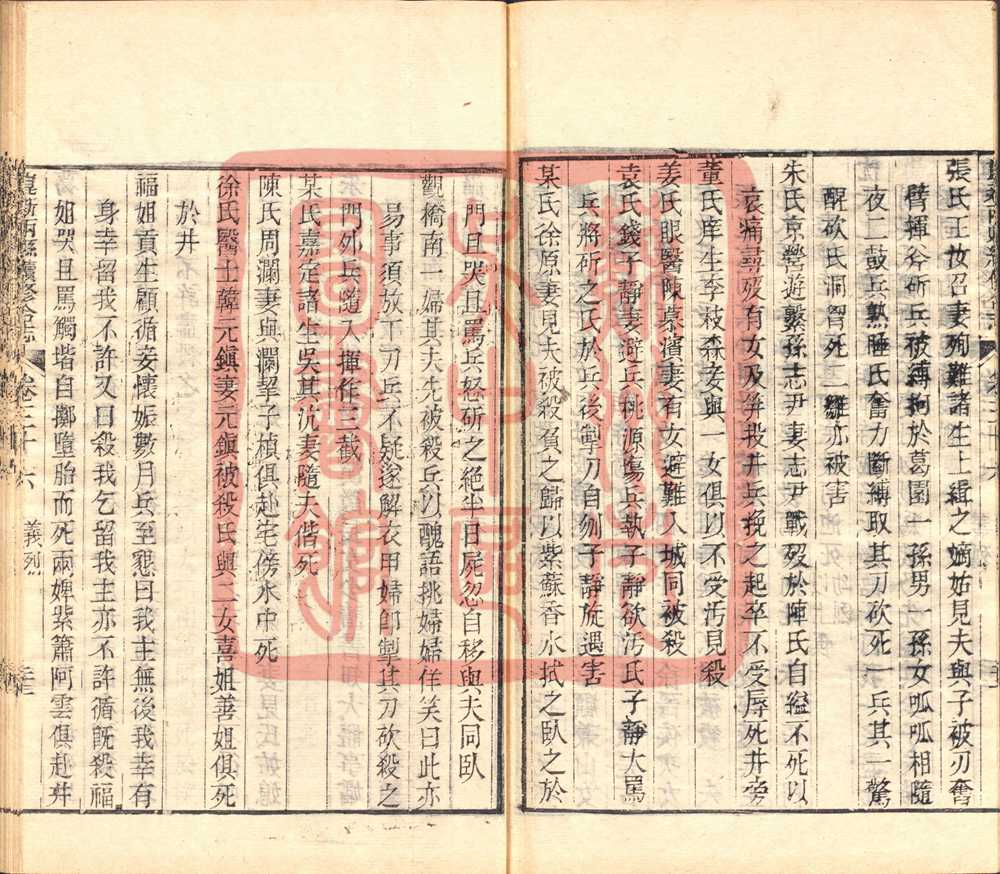 張氏王汝召妻殉難諸生上緝之嫡姑見夫與子被刃奮
臂揮斧斫兵被縛拘於葛園一孫男一孫女呱呱相隨
夜二鼓兵熟睡氏奮力斷縛取其刀砍死一兵其一驚
醒砍氏洞胷死二雛亦被害
朱氏京營遊擊孫志尹妻志尹戰歿於陣氏自縊不死以
哀痛尋歿有女及笄投井兵挽之起卒不受辱死井旁
董氏庠生李枝森妾與一女俱以不受汚見殺
姜氏眼醫陳慕濱妻有女避難入城同被殺
袁氏錢子靜妻避兵桃源傷兵執子靜欲汚氏子靜大罵
兵將斫之氏於兵後掣刀自刎子靜旋遇害
某氏徐原妻見夫被殺負之歸以紫蘇香水拭之臥之於
門且哭且罵兵怒斫之絕半日屍忽自移與夫同臥
觀橋南一婦其夫先被殺兵以醜語挑婦婦佯笑曰此亦
易事須放下刀兵不疑遂解衣甲婦卽掣其刀砍殺之
門外兵隨入揮作三截
某氏嘉定諸生吳其沆妻隨夫偕死
陳氏周瀾妻與瀾挈子楨俱赴宅傍水中死
徐氏醫士韓元鎭妻元鎭被殺氏與二女喜姐善姐俱死
於井
福姐貢生顧循妾懷娠數月兵至懇曰我主無後我幸有
身幸留我不許又曰殺我乞留我主亦不許循旣殺福
姐哭且罵觸堦自擲墮胎而死兩婢紫簫阿雲俱赴井
崑新兩縣續修合志
卷三十六
義烈